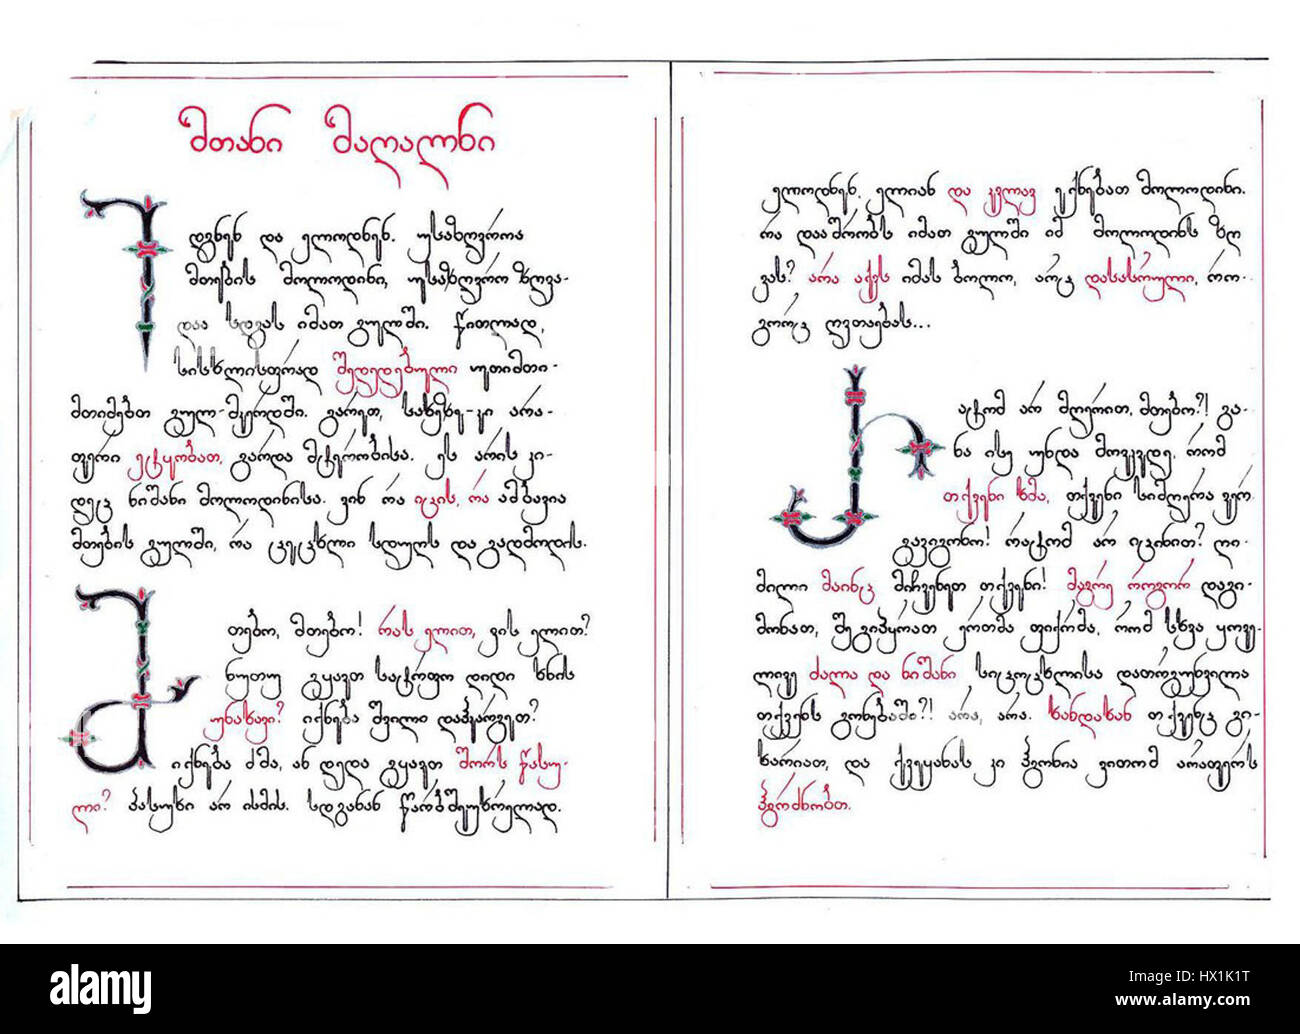 მთანი მაღალნი
იდგნენ და ელოდნენ. უსაზღვროა
მთების მოლოდინი, უსაზღვრო ზღვა-
დაა სდგას იმათ გულში. წითლად,
სისხლისფრად შედედებული უთიმთი-
მთიმებთ გულ-მკერდში. გარეთ, სახეზე-კი არა-
ფერი ეტყობათ, გარდა მტერობისა. ეს არის კი-
დეც ნიშანი მოლოდინისა. ვინ რა იცის, რა ამბავია
მთების გულში, რა ცეცხლი სდუღს და გადმოდის.
მთებო, მთებო! რას ელით, ვის ელით?
ნუთუ გყავთ სატრფო დიდი ხნის
უნახავი? იქნება შვილი დაჰკარგეთ?
იქნება ძმა, ან დედა გყავთ შორს წასუ-
ლი? პასუხი არ ისმის. სდგანან წარბშეუხრელად.
ელოდნენ, ელიან და კვლავ ექნებათ მოლოდინი.
რა დააშრობს იმათ გულში იმ მოლოდინს ზღ
ვას? არა აქვს იმას ბოლო, არც დასასრული, რო-
გორც ღვთაებას...
რატომ არ მღერით, მთებო?! გა-
ნა ისე უნდა მოვკვდე, რომ
თქვენი ხმა, თქვენი სიმღერა ვერ
გავიგონო! რატომ არ იცინით? ღი-
მილი მაინც მიჩვენეთ თქვენი! მაგრე როგორ დაგი-
მონათ, შეგიპყრათ ერთმა ფიქრმა, რომ სხვა ყოვე-
ლივე ძალა და ნიშანი სიცოცხლისა დათრგუნვილა
თქვენს გონებაში?! არა, არა. ხანდახან თქვენც გი-
ხარიათ, და ქვეყანას კი ჰგონია ვითომ არაფერს
ჰგრძნობთ.
alamy stock photo
HX1K1T
www.alamy.com